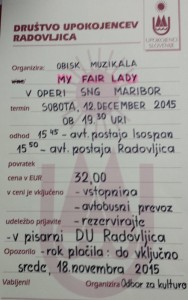 DRUŠTVO UPOKOJENCEV
RADOVLJICA
Organizira: OBISK MUZIKALA
MY FAIR LADY
V OPERI SNG MARIBOR
termin SOBOTA, 12. DECEMBER 2015
OB 19.30 URI
odhod 15 45 - avt. postaja Isospan
15 50 - avt. postaja Radovljica
povratek
cena v EUR 32,00
v ceni je vključeno - vstopnina
- avtobusni prevoz
udeležbo prijavite - rezervirajte
- v pisarni DU Radovljica
Opozorilo - rok plačila: do vključno
srede, 18. novembra 2015
Vabljeni! Organizira: Odbor za kulturo